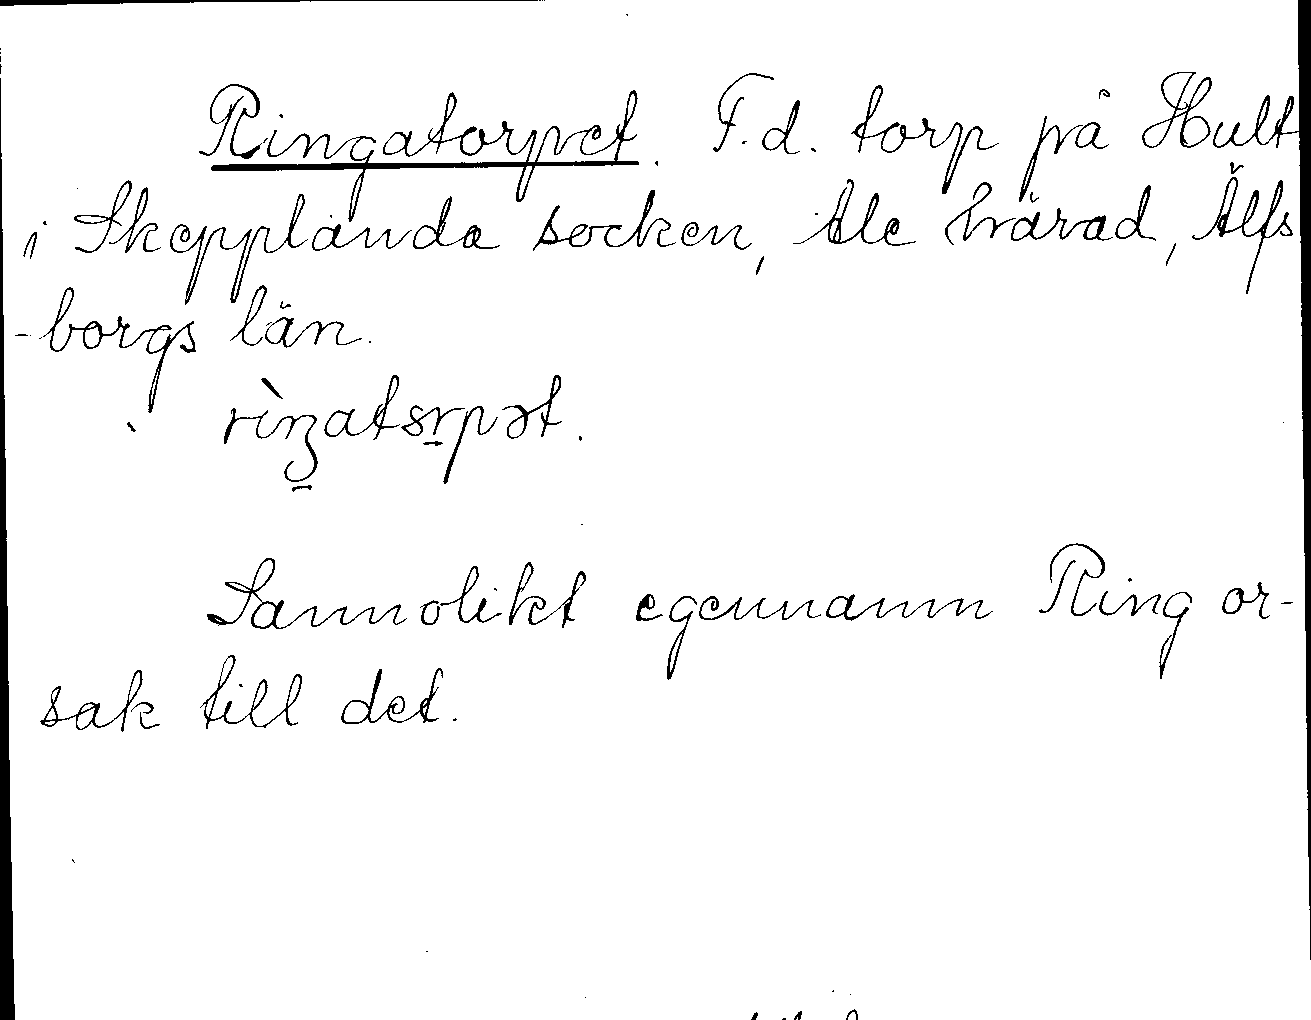 Ringatorpet. F.d. torp på Hult
i Skepplanda socken, Ale härad, Älfs
-borgs län.
rìŋatsrpət.
Sannolikt egennamn Ring or-
sak till det.